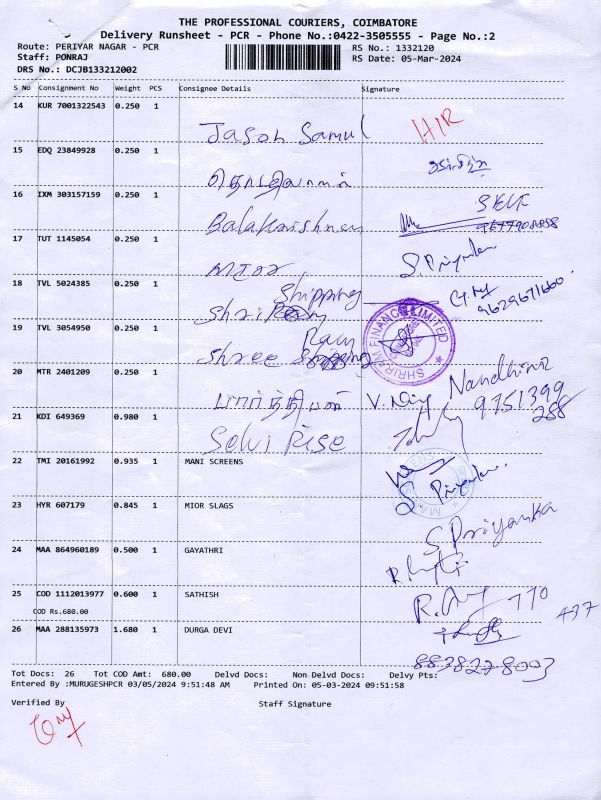 THE PROFESSIONAL COURIERS, COIMBATORE
Delivery Runsheet - PCR - Phone No.:0422-3505555 - Page No.:2
Route: PERIYAR NAGAR - PCR RS No.: 1332120
Staff: PONRAJ RS Date: 05-Mar-2024
DRS No.: DCJB133212002
S No Consignment No Weight PCS Consignee Details Signature
14 KUR 7001322543 0.250 1
Jason Samul HIR
15 EDQ 23849928 0.250 1
16 IXM 303157159 0.250 1
Balakrishnen SELF
17 TUT 1145054 0.250 1
MIOR S. Priyanka
18 TVL 5024385 0.250 1
Shipping
Shri 9629671660
19 TVL 3054950 0.250 1
SHRIRAM FINANCE LIMITED
Ram
Shree
20 MTR 2401209 0.250 1
Nandhini
பார்த்திபன் 9751399
288
21 KDI 649369 0.980 1
Selvi Rise
22 TMI 20161992 0.935 1 MANI SCREENS
S. Priyanka
23 HYR 607179 0.845 1 MIOR SLAGS
S Priyanka
24 MAA 864960189 0.500 1 GAYATHRI
25 COD 1112013977 0.600 1 SATHISH
COD Rs.680.00 770 437
26 MAA 288135973 1.680 1 DURGA DEVI
8838278003
Tot Docs: 26 Tot COD Amt: 680.00 Delvd Docs: Non Delvd Docs: Delvy Pts:
Entered By :MURUGESHPCR 03/05/2024 9:51:48 AM Printed On: 05-03-2024 09:51:58
Verified By Staff Signature